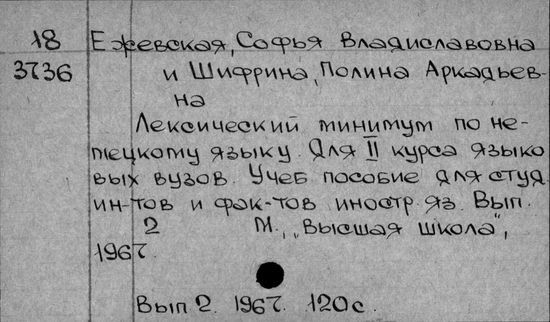 18 Ежевская, Софья Владиславовна
3736 и Шифрина, Полина Аркадьев-
на
Лексический минимум по не-
мецкому языку. Для II курса языко
вых вузов. Учеб пособие для студ.
ин-тов и фак-тов иностр. яз. Вып.
2 М., "Высшая школа",
1967.
Вып 2. 1967. 120 с.